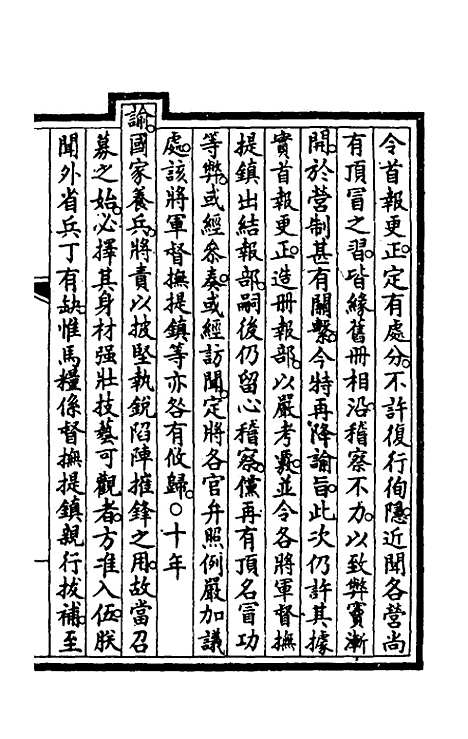 令首報更正。定有處分。不許復行徇隱。近聞各營尚
有頂冒之習。皆緣舊冊相沿。稽察不力。以致弊竇漸
開。於營制甚有關繫。今特再降諭旨。此次仍許其據
實首報更正。造冊報部。以嚴考覈。並令各將軍督撫
提鎮出結報部。嗣後仍留心稽察。儻再有頂名冒功
等弊。或經叅奏。或經訪聞。定將各官弁照例嚴加議
處。該將軍督撫提鎮等亦咎有攸歸。○十年
諭。國家養兵。將責以披堅執銳陷陣摧鋒之用。故當召
募之始。必擇其身材强壯技藝可觀者。方准入伍。朕
聞外省兵丁有缺。惟馬糧係督撫提鎮親行拔補。至